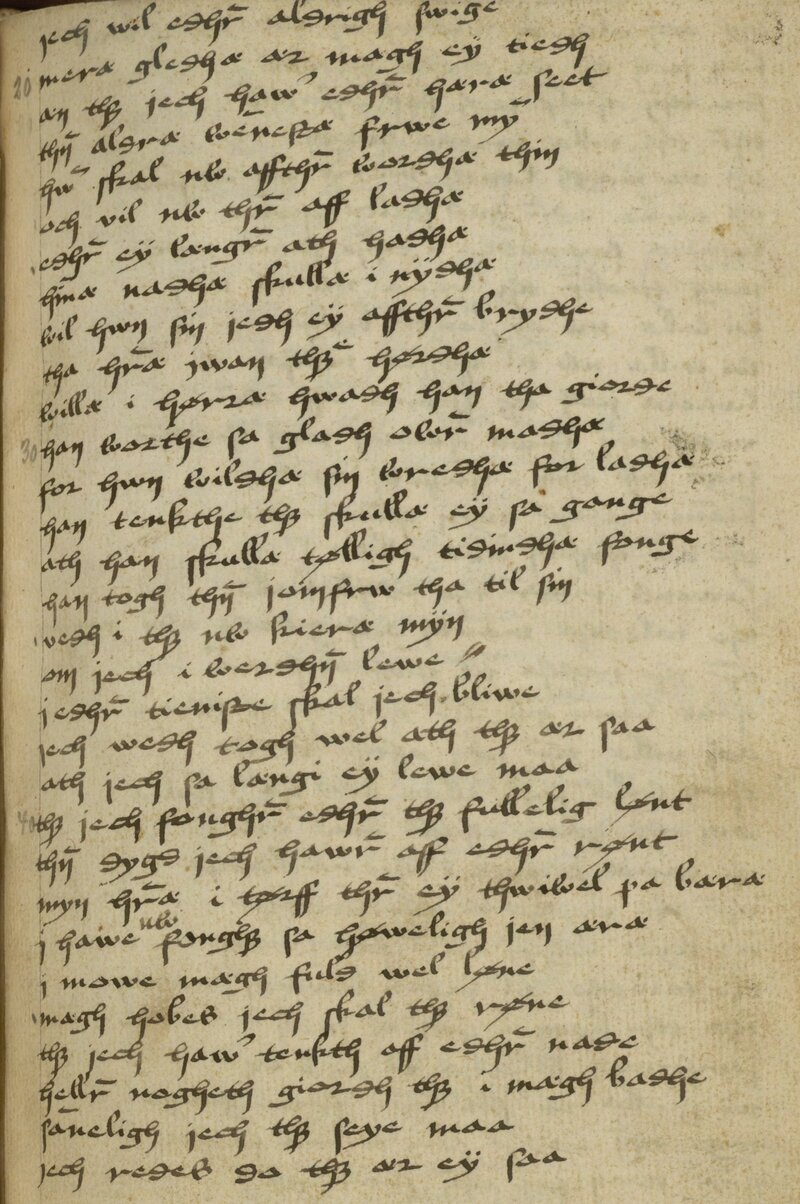 jech wil edhr̄ aldrigh swige
meræ gledhæ ær magh ey tiedh
æn thꝫ jech haw᷎ edhr̄ hæræ seet
thn̄ aldræ wēnestæ frwe my᷎
hw᷎ skal nw affthr̄ wordhæ thin
och vil nw thr̄ aff ladhæ
edhr̄ ey længr̄ ath hadhæ
hn̄æ nadhæ skullæ i nydhæ
wil hwn sin jedh ey affthr̄ brydhe
tha hr̄æ jwan thꝫ hørdhæ
willæ i hørræ hwadh han tha giorde
30 han worthe sa gladh owr̄ madhæ
for hwn wildhæ sin wredhæ for ladhæ
han tenkthe thꝫ skullæ ey sa gange
ath han skullæ tølligh tidindhæ fonge
han togh thn̄ jomfrw tha til sin
vedh i thꝫ nw kieræ myn
om jech i werdhn̄ lewe
jedhr̄ tieniste skal jech bliwe
jech wedh togh wel ath thꝫ ær saa
ath jech sa længi ey lewe maa
40 thꝫ jech fonghr̄ edhr̄ thꝫ fullelig lønt
thn̄ dygd jech hawr̄ aff edhr̄ rønt
myn hr̄æ i tørff thr̄ ey thwiwel pa bæræ
j hawe nw fonghꝫ sa høweligh jen æræ
j mowe mægh fuld wel løne
magh hobes jech skal thꝫ røne
thꝫ jech haw᷎ tenkth aff edhr̄ nade
hellr̄ nogheth giordh thꝫ i mægh badhe
sāneligh jech thꝫ seye maa
jech redes do thꝫ ær ey saa